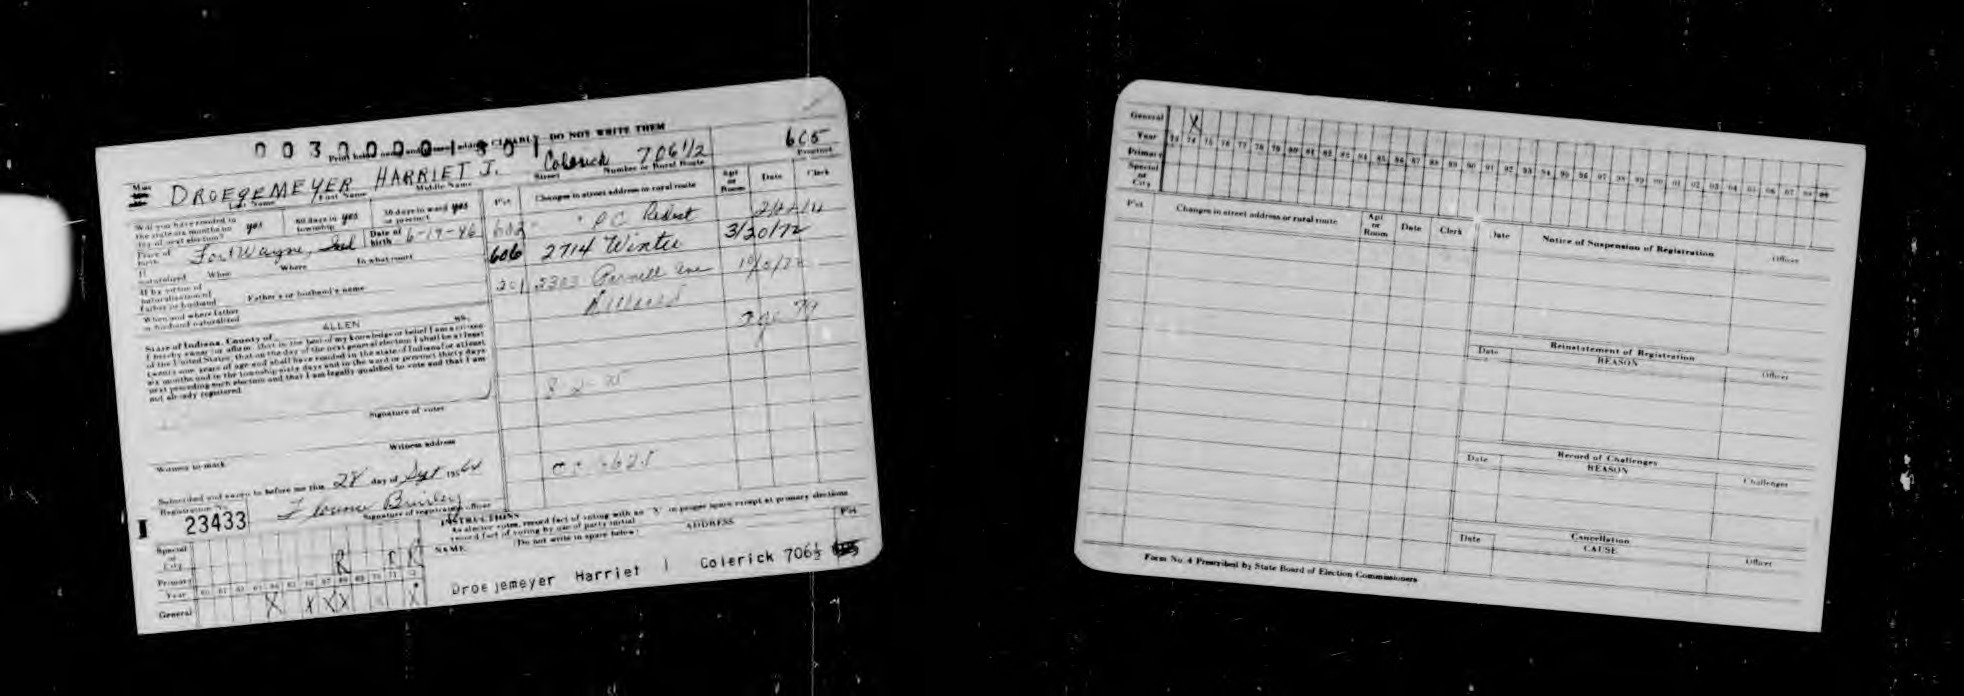 Print below name and address CLEARLY DO NOT WRITE THEM
DROEGEMEYER HARRIET J. Colerick 706 1/2 605
Last Name First Name Middle Name Street Number or Rural Route Precinct
Will you have resided in the state six months on day of next election? yes 60 days in township yes 30 days in ward or precinct yes
Place of Birth Fort Wayne, Ind Date of birth
If naturalized When Where In what court
If by virtue of naturalization of Father or husband Father's or husband's name
When and where father or husband naturalized
Pct. Changes in street address or rural route Apt or Room Date Clerk
602
606 2714 Winter 3/20/72
Parnell Ave
age 79
State of Indiana, County of ALLEN ss.
I hereby swear (or affirm) that to the best of my knowledge or belief I am a citizen
of the United States; that on the day of the next general election I shall be at least
twenty one years of age and shall have resided in the state of Indiana for at least
six months and in the township sixty days and in the ward or precinct thirty days
next preceding such election and that I am legally qualified to vote and that I am
not already registered.
Signature of voter
Witness to mark Witness address
Subscribed and sworn to before me this 28 day of Sept 1964
Registration No. 23433
Signature of registration officer
Special or City
Primary
Year 60 61 62 63 64 65 66 67 68 69 70 71 72
General X X X X X
INSTRUCTIONS
As elector votes, record fact of voting with an "X" in proper space except at primary elections
record fact of voting by use of party initial
(Do not write in space below)
NAME ADDRESS Pct
Droejemeyer Harriet J Colerick 706½
General X
Year 73 74 75 76 77 78 79 80 81 82 83 84 85 86 87 88 89 90 91 92 93 94 95 96 97 98 99 00 01 02 03 04 05 06 07 08 09
Primary
Special or City
Pct. Changes in street address or rural route Apt or Room Date Clerk
Date Notice of Suspension of Registration Officer
Reinstatement of Registration
Date REASON Officer
Record of Challenges
Date REASON Challenger
Cancellation
Date CAUSE Officer
Form No. 4 Prescribed by State Board of Election Commissioners